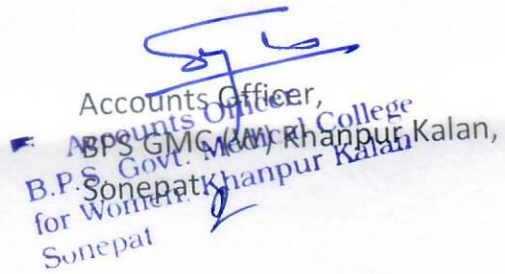 Accounts Officer,
BPS GMC (W) Khanpur Kalan,
Sonepat.
Accounts Officer
B.P.S. Govt. Medical College
for Women. Khanpur Kalan
Sonepat